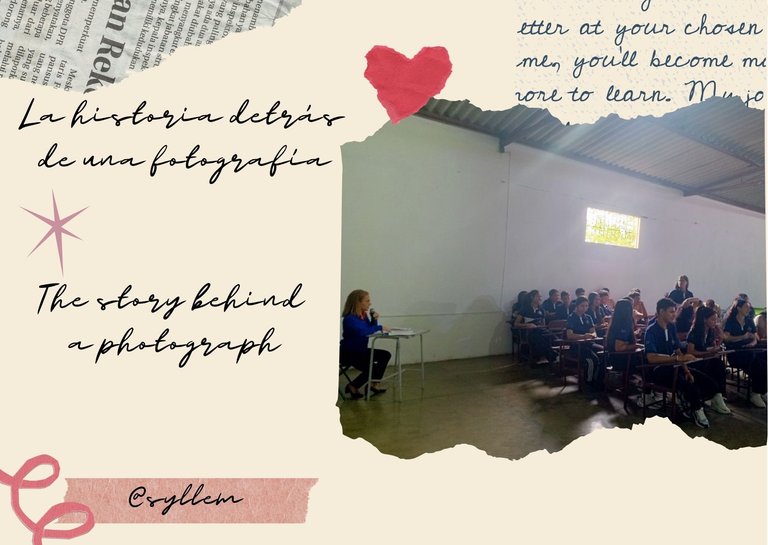 etter at your chosen
me, you'll become mo
ore to learn. My jo
La historia detrás
de una fotografía
The story behind
a photograph
@syllem